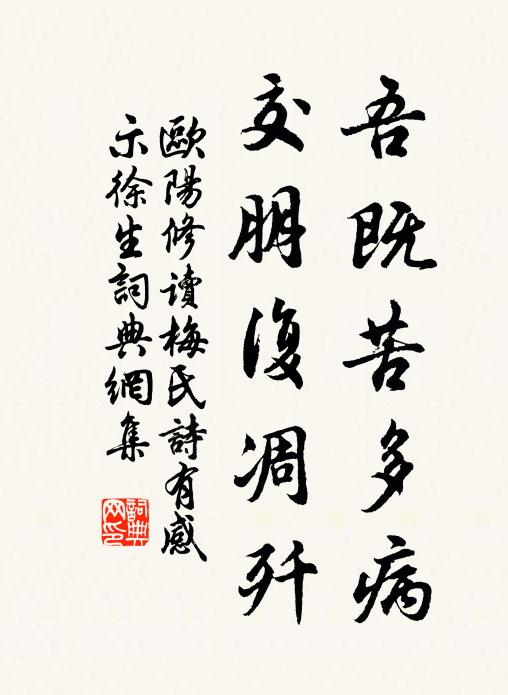 吾既苦多病
交朋復凋歼
歐陽修讀梅氏詩有感
示徐生詞典網集
詞典网印